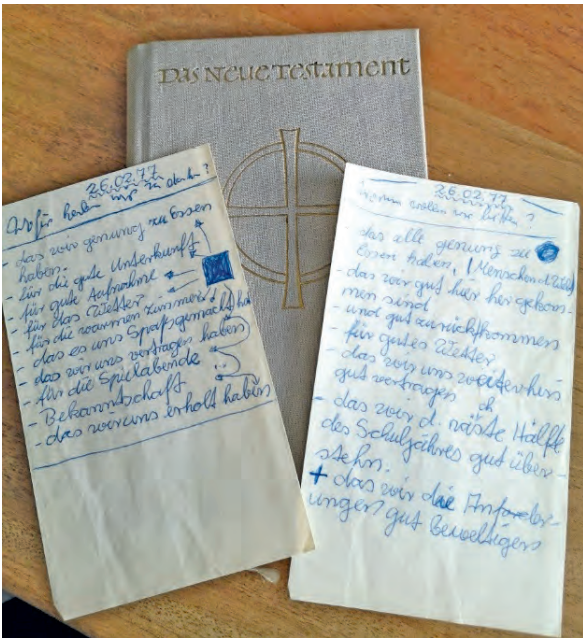 Das Neue Testament
26.02.77
Wofür haben wir zu danken?
- das wir genung zu Essen
haben.
- für die gute Unterkunft
- für gute Aufnahme
- für das Wetter
- für die warmen Zimmer
- das es uns Spaß gemacht hat
- das wir uns vertragen haben
- für die Spielabende
- Bekanntschaft
- das wir uns erholt haben
26.02.77
Worum wollen wir bitten?
- das alle genung zu
Essen haben, (Mensch und Tier)
- das wir gut hier her gekom-
men sind
- und gut zurückkommen
- für gutes Wetter
- das wir uns weiterhin
gut vertragen
- das wir d. nächste Hälfte
des Schuljahres gut über-
stehn.
+ das wir die Anforder-
ungen gut